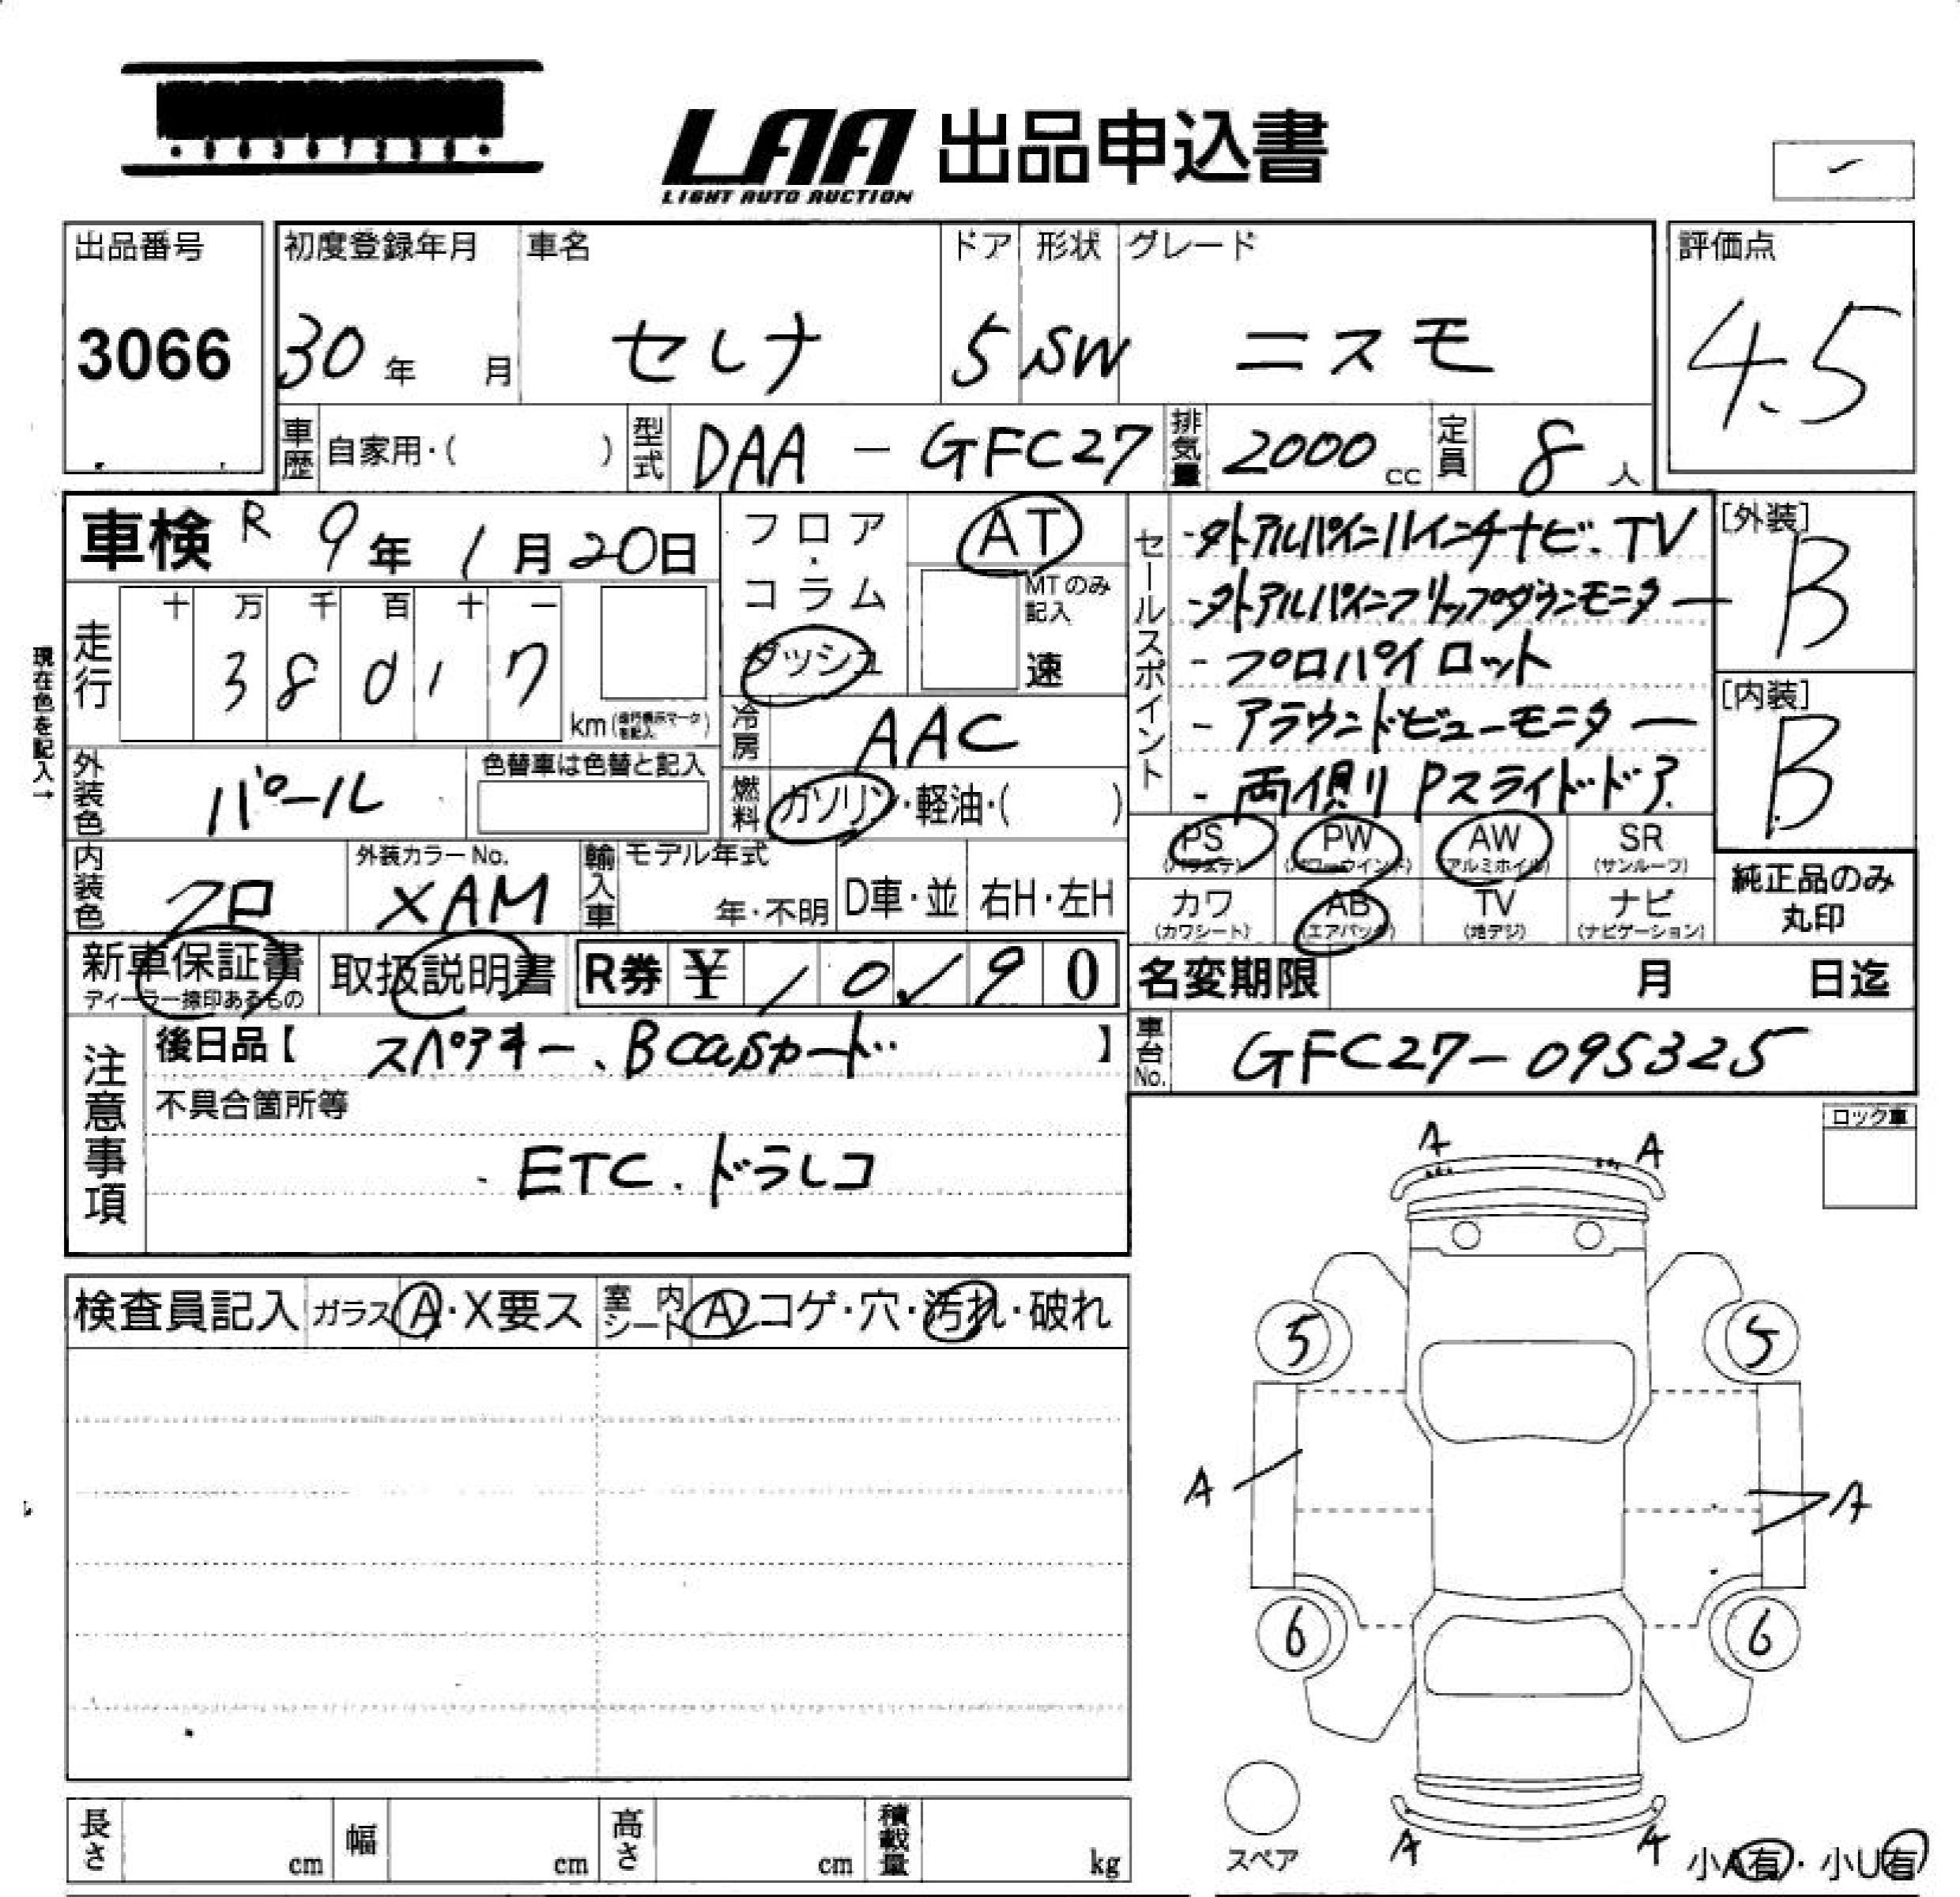 LAA 出品申込書
LIGHT AUTO AUCTION
出品番号 初度登録年月 車名 ドア 形状 グレード 評価点
3066 30年 月 セレナ 5 SW ニスモ 4.5
車歴 自家用・( ) 型式 DAA - GFC27 排気量 2000cc 定員 8人
車検 R 9年 1月20日 フロア・ AT セールスポイント ・外アルパイン11インチナビ.TV [外装] B
コラム MTのみ記入 ・外アルパインフリップダウンモニター
走行 十 万 千 百 十 一
3 8 0 1 7 ダッシュ 速 - プロパイロット
km (走行表示マークを記入) 冷房 AAC - アラウンドビューモニター [内装] B
現在色を記入→
外装色 パール 色替車は色替と記入 燃料 ガソリン・軽油・( ) - 両側Pスライドドア
PS (パワステ) PW (パワーウインド) AW (アルミホイル) SR (サンルーフ)
内装色 クロ 外装カラーNo. XAM 輸入車 モデル年式 年・不明 D車・並 右H・左H
カワ (カワシート) AB (エアバック) TV (地デジ) ナビ (ナビゲーション) 純正品のみ丸印
新車保証書 ディーラー捺印あるもの 取扱説明書 R券 ¥ 10,190 名変期限 月 日迄
注意事項 後日品【 スペアキー、Bcasカード 】 車台No. GFC27-095325
不具合箇所等
・ETC.ドラレコ
ロック車
A A
検査員記入 ガラス A・X要ス 室内シート A・コゲ・穴・汚れ・破れ
5 5
A A
6 6
スペア
A A
小A有・小U有
長さ cm 幅 cm 高さ cm 積載量 kg